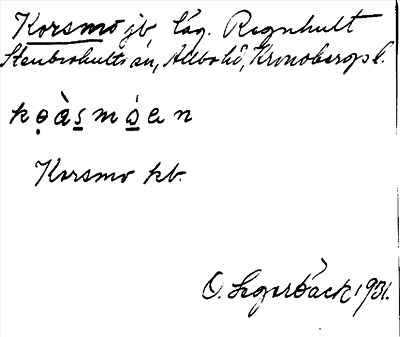 Korsmo jb låg. Regnhult
Stenbrohults sn, Allbo hd, Kronobergs l.
kọàs̲mo̲en
Korsmo kb.
O. Segerbäck 1931.